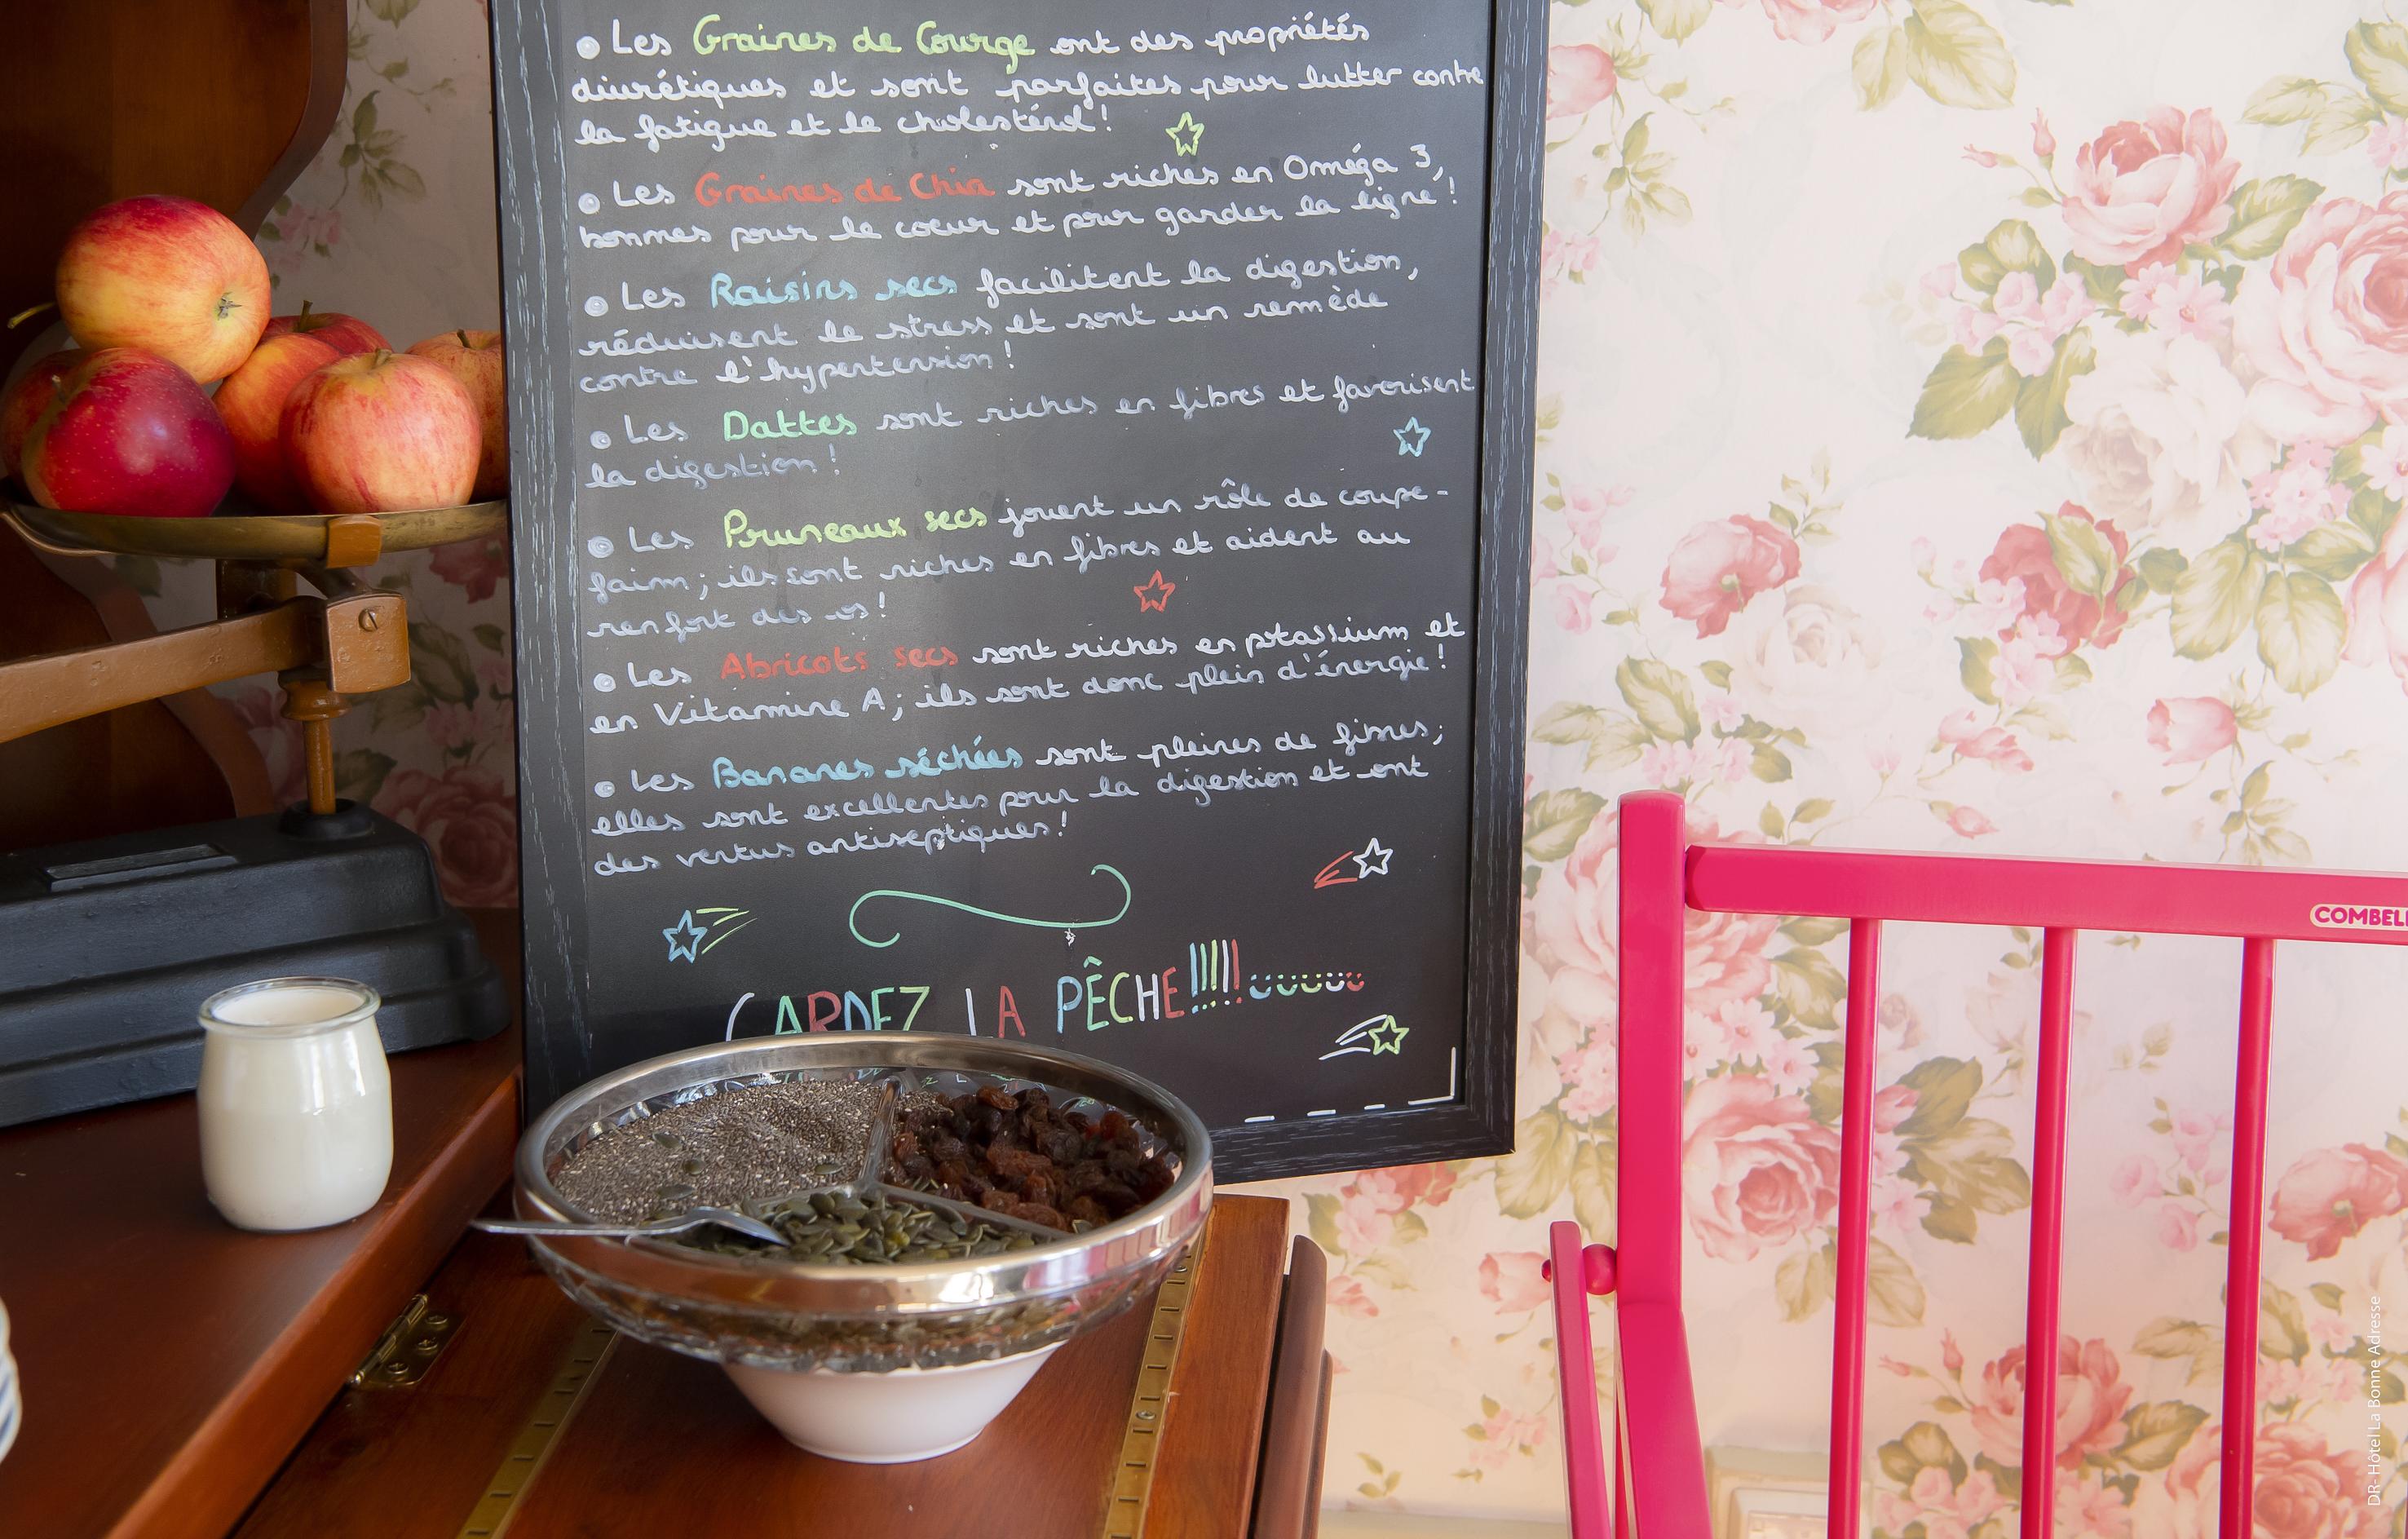 • Les Graines de Courge ont des propriétés
diurétiques et sont parfaites pour lutter contre
la fatigue et le cholestérol !
• Les Graines de Chia sont riches en Oméga 3,
bonnes pour le coeur et pour garder la ligne !
• Les Raisins secs facilitent la digestion,
réduisent le stress et sont un remède
contre l'hypertension !
• Les Dattes sont riches en fibres et favorisent
la digestion !
• Les Pruneaux secs jouent un rôle de coupe-
faim ; ils sont riches en fibres et aident au
renfort des os !
• Les Abricots secs sont riches en potassium et
en Vitamine A ; ils sont donc plein d'énergie !
• Les Bananes séchées sont pleines de fibres ;
elles sont excellentes pour la digestion et ont
des vertus antiseptiques !
GARDEZ LA PÊCHE!!!!!
COMBEL
DR - Hôtel La Bonne Adresse